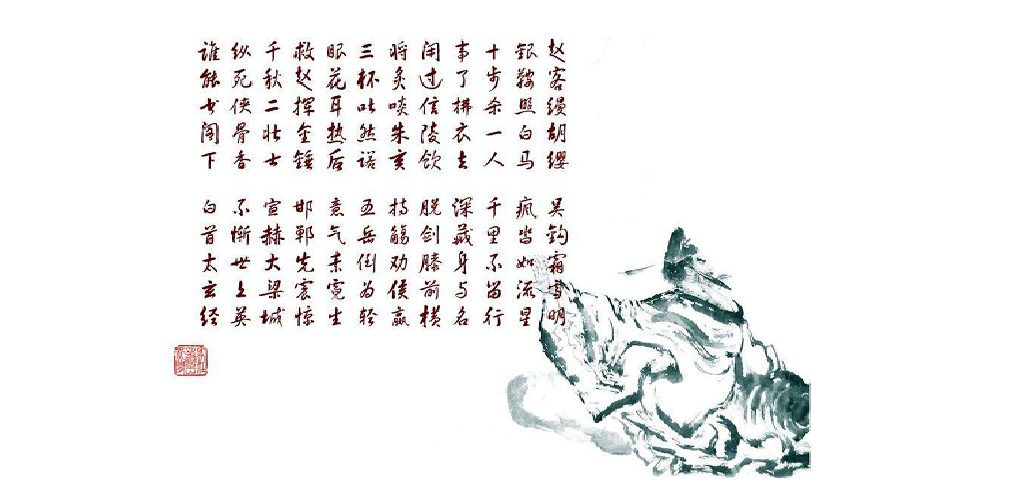 赵客缦胡缨 吴钩霜雪明
银鞍照白马 疯沓如流星
十步杀一人 千里不留行
事了拂衣去 深藏身与名
闲过信陵饮 脱剑膝前横
将炙啖朱亥 持觞劝侯嬴
三杯吐然诺 五岳倒为轻
眼花耳热后 意气素霓生
救赵挥金锤 邯郸先震惊
千秋二壮士 宣赫大梁城
纵死侠骨香 不惭世上英
谁能书阁下 白首太玄经